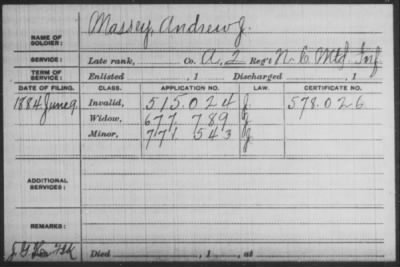 NAME OF SOLDIER: Massey, Andrew J.
SERVICE: Late rank, Co. A, 2 Reg't N. C. Mtd. Inf
TERM OF SERVICE: Enlisted , 1 Discharged , 1
DATE OF FILING. CLASS. APPLICATION NO. LAW. CERTIFICATE NO.
1884 June 9 Invalid, 515.024 J 578.026
Widow, 677 789 J
Minor, 771 543 J
ADDITIONAL SERVICES:
REMARKS:
Died , 1 , at